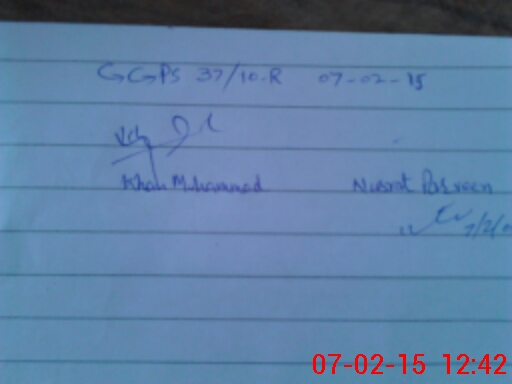 GGPS 37/10-R 07-02-15
Khan Muhammad Nusrat Parveen
07-02-15 12:42